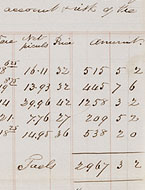 account with of the
Tare Net piculs Price Amount
16.11 32 515 5 2
13.93 32 445 7 6
14 29.96 42 1258 3 2
21 7.76 27 209 5 2
14.95 36 538 2 0
Taels 2967 3 2